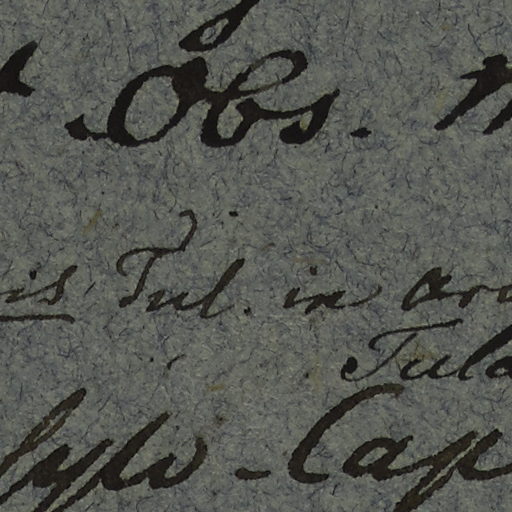 Obs.
is Tul. in arc
Tula
Sylv - Cap